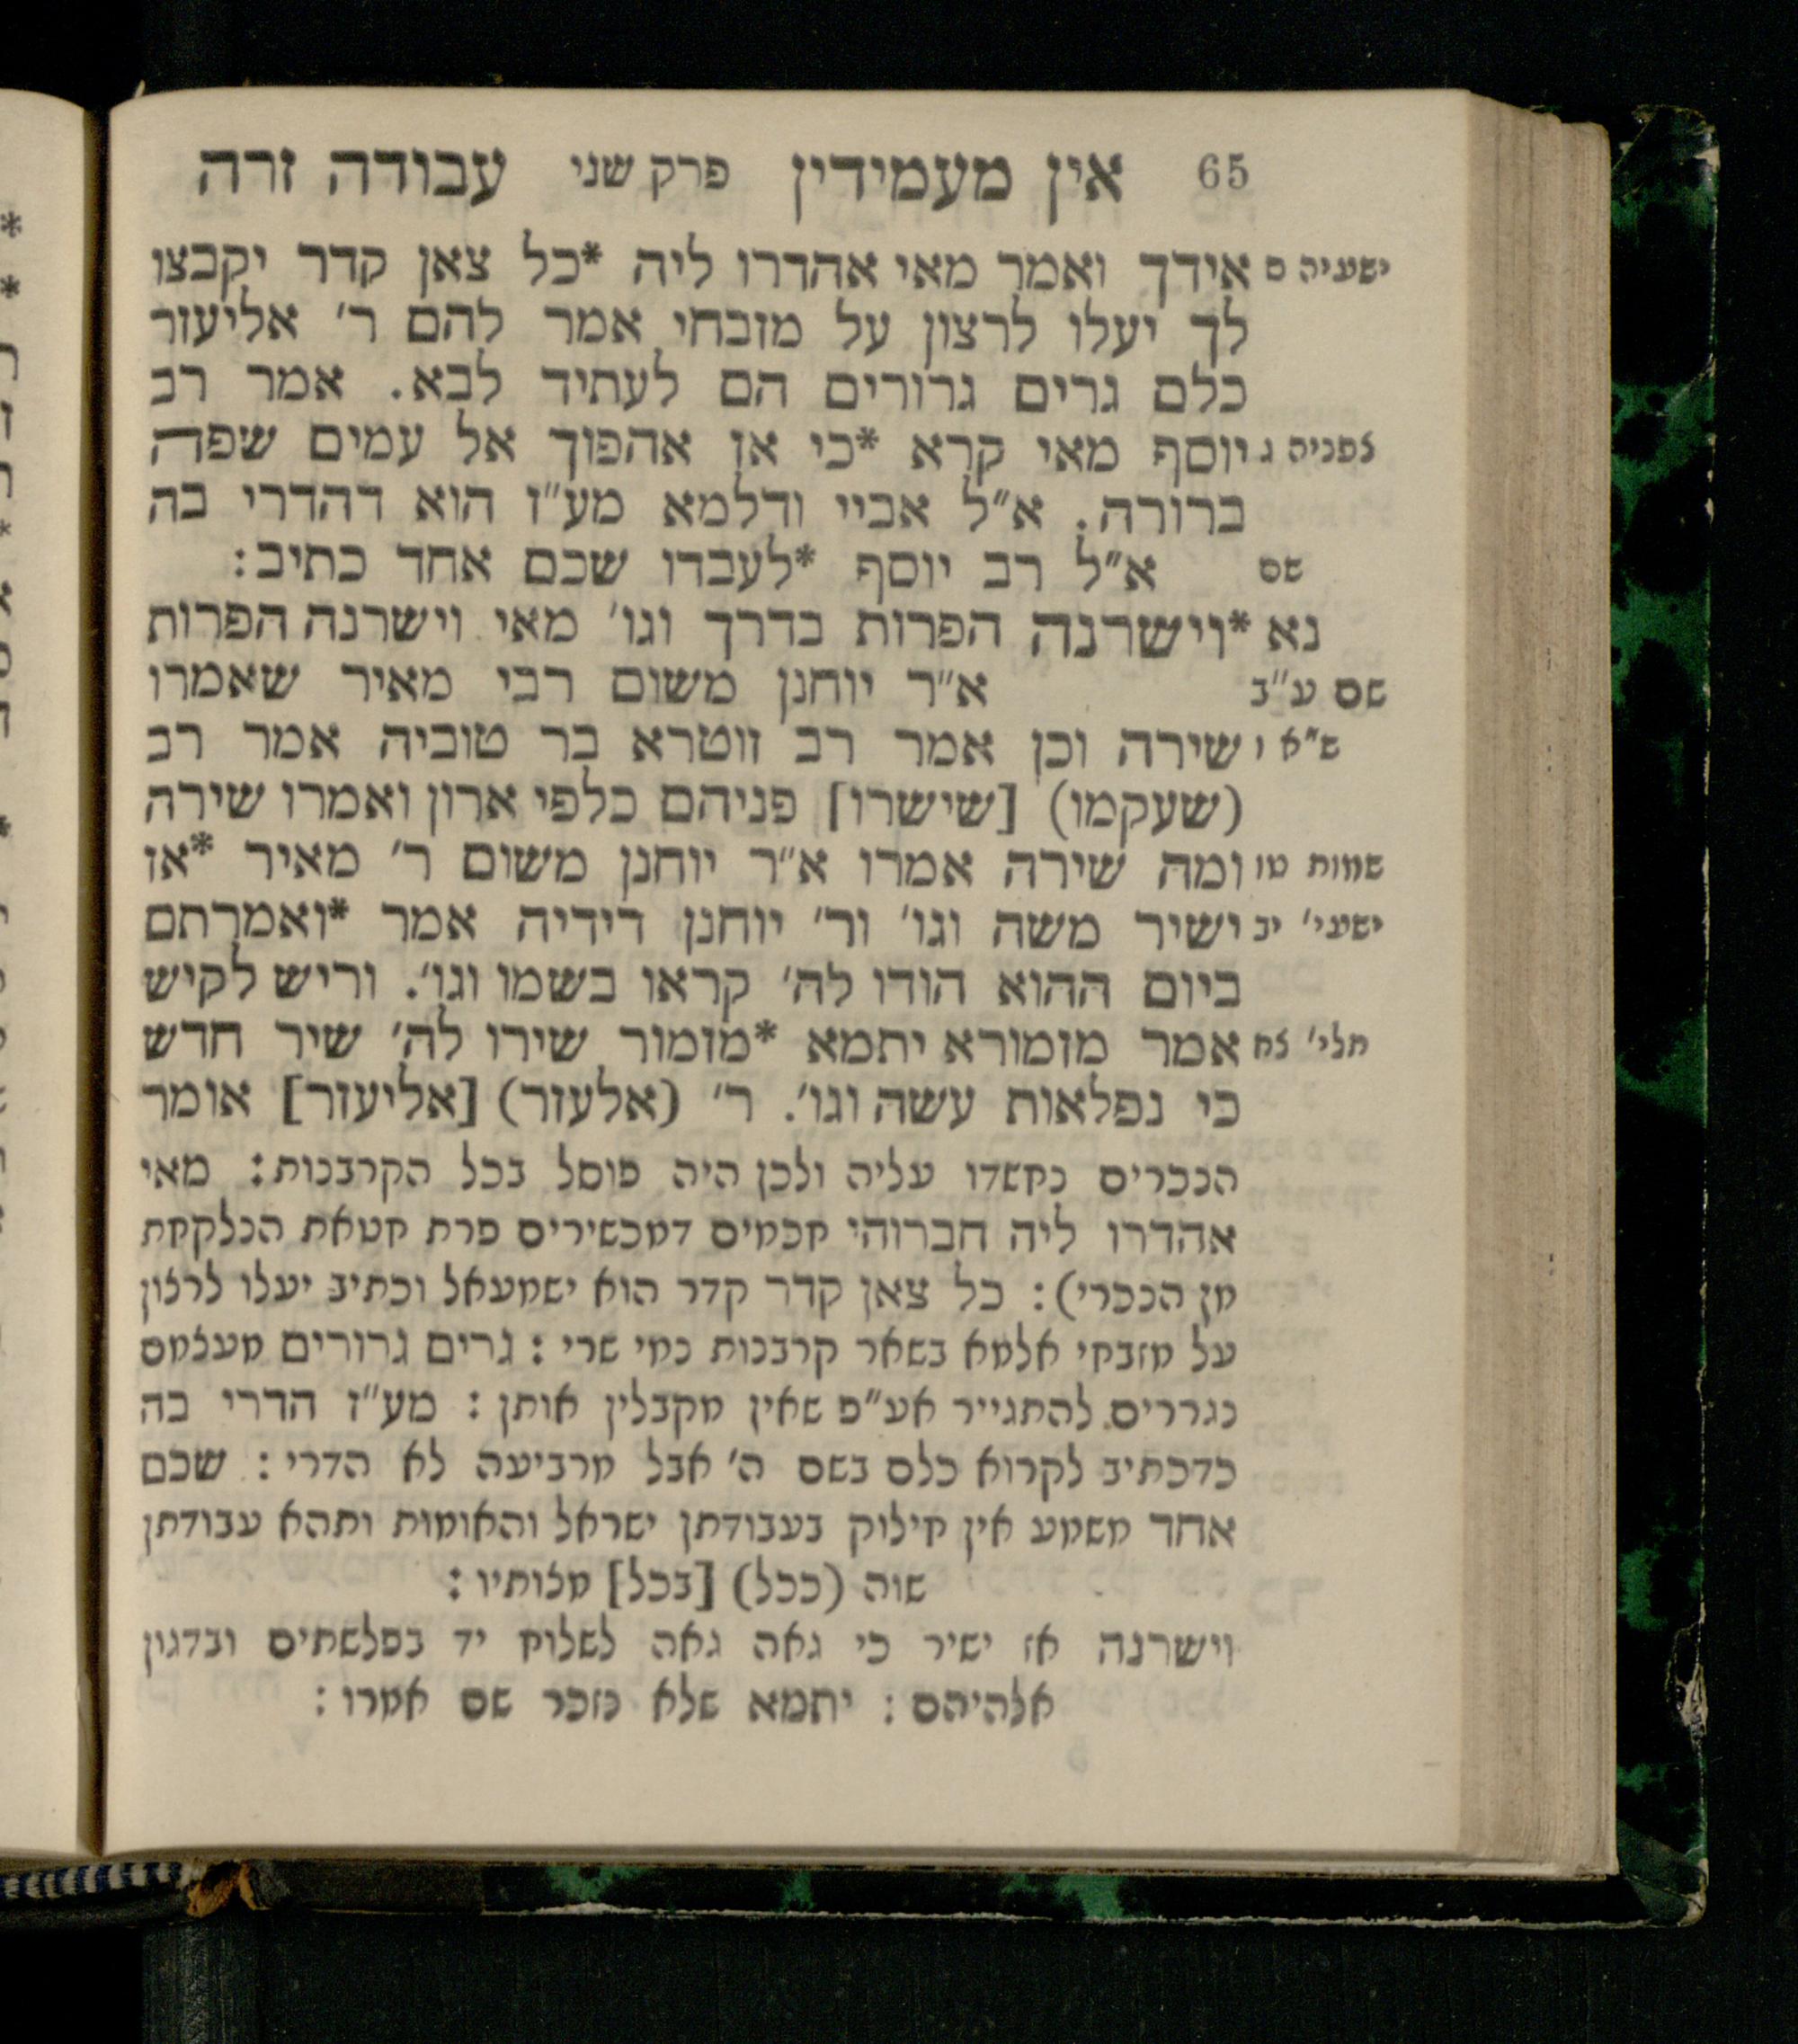 65 אין מעמידין פרק שני עבודה זרה
ישעיה ס אידך ואמר מאי אהדרו ליה *כל צאן קדר יקבצו
לך יעלו לרצון על מזבחי אמר להם ר׳ אליעזר
כלם גרים גרורים הם לעתיד לבא. אמר רב
צפניה ג יוסף מאי קרא *כי אז אהפוך אל עמים שפה
ברורה. א״ל אביי ודלמא מע״ז הוא דהדרי בה
שם א״ל רב יוסף *לעבדו שכם אחד כתיב:
נא *וישרנה הפרות בדרך וגו׳ מאי וישרנה הפרות
שם ע״ב א״ר יוחנן משום רבי מאיר שאמרו
ש״א ו שירה וכן אמר רב זוטרא בר טוביה אמר רב
(שעקמו) [שישרו] פניהם כלפי ארון ואמרו שירה
שמות טו ומה שירה אמרו א״ר יוחנן משום ר׳ מאיר *אז
ישעי׳ יב ישיר משה וגו׳ ור׳ יוחנן דידיה אמר *ואמרתם
ביום ההוא הודו לה׳ קראו בשמו וגו׳. וריש לקיש
תלי׳ צח אמר מזמורא יתמא *מזמור שירו לה׳ שיר חדש
כי נפלאות עשה וגו׳. ר׳ (אלעזר) [אליעזר] אומר
הנכרים נחשדו עליה ולכן היה פוסל בכל הקרבנות: מאי
אהדרו ליה חברוהי חכמים דמכשירים פרת חטאת הנלקחת
מן הנכרי): כל צאן קדר קדר הוא ישמעאל וכתיב יעלו לרצון
על מזבחי אלמא בשאר קרבנות נמי שרי: גרים גרורים מעצמם
נגררים להתגייר אע״פ שאין מקבלין אותן: מע״ז הדרי בה
כדכתיב לקרוא כלם בשם ה׳ אבל מרביעה לא הדרי: שכם
אחד משמע אין חילוק בעבודתן ישראל והאומות ותהא עבודתן
שוה (ככל) [בכל] מצותיו:
וישרנה אז ישיר כי גאה גאה לשלוח יד בפלשתים ובדגון
אלהיהם: יתמא שלא נזכר שם אמרו: